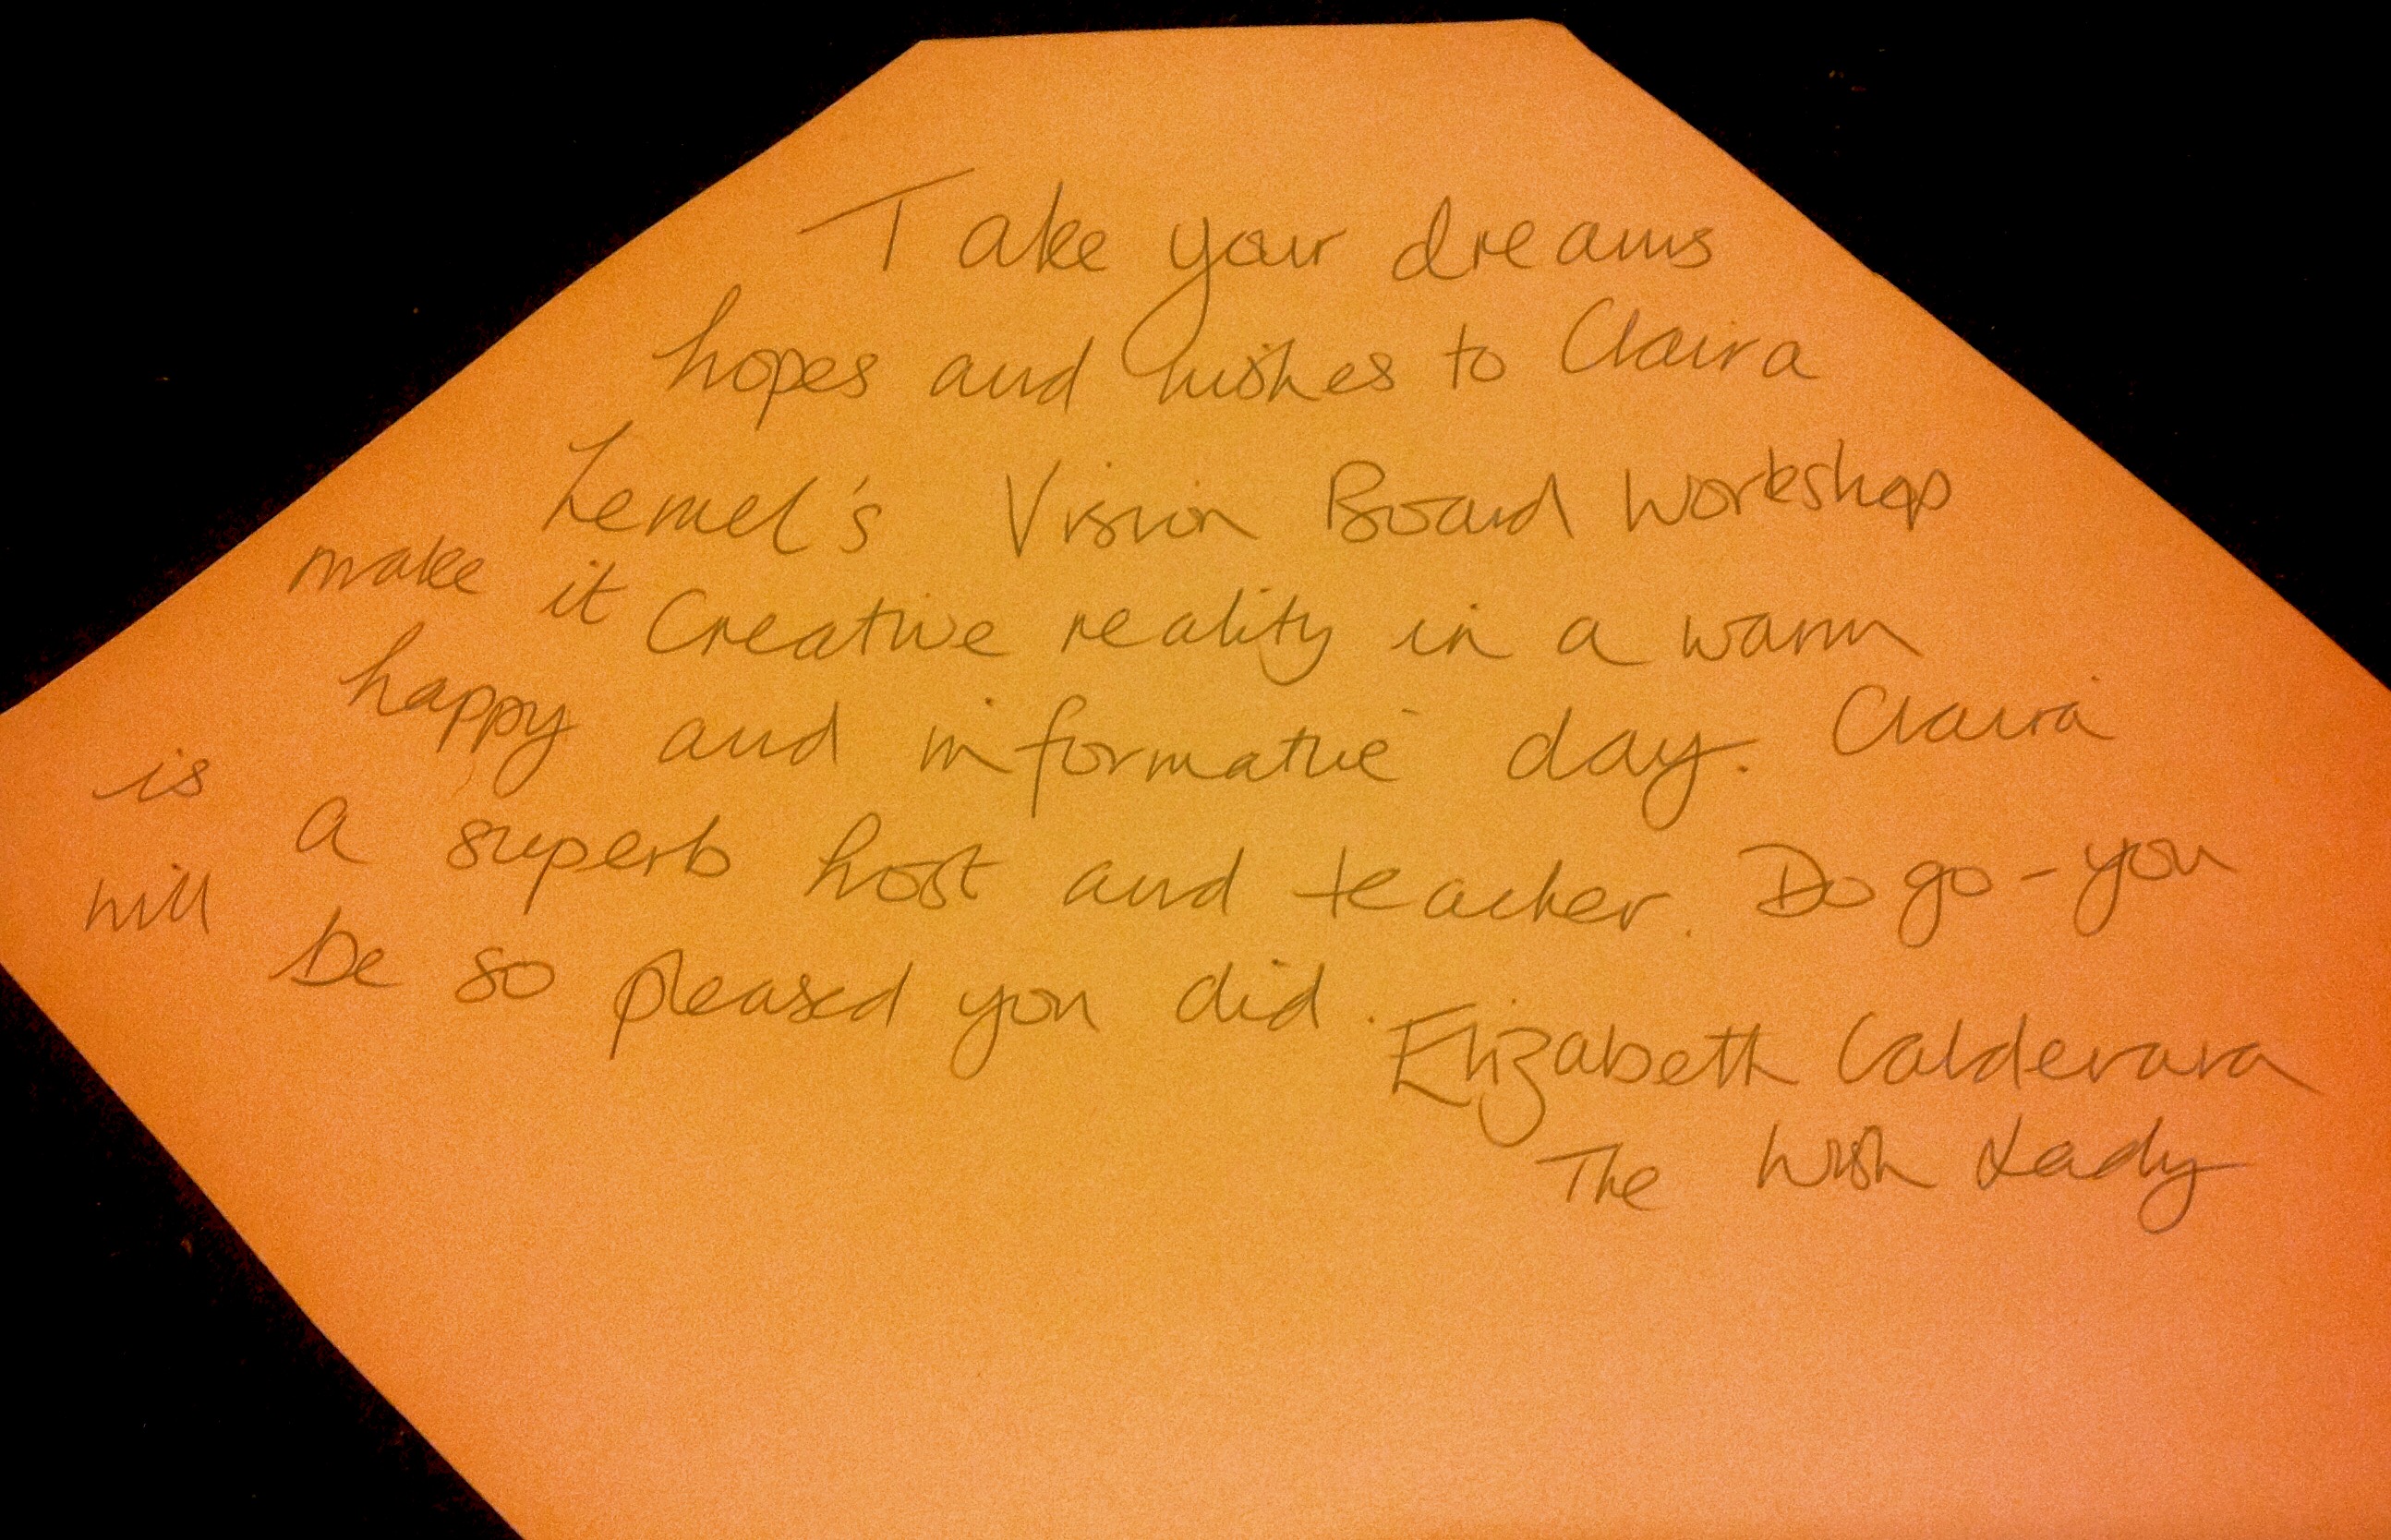 Take your dreams
hopes and wishes to Claira
Hemel's Vision Board Workshop
make it Creative reality in a warm
happy and informative day. Claira
is a superb host and teacher. Do go - you
will be so pleased you did.
Elizabeth Calderara
The Wish Lady